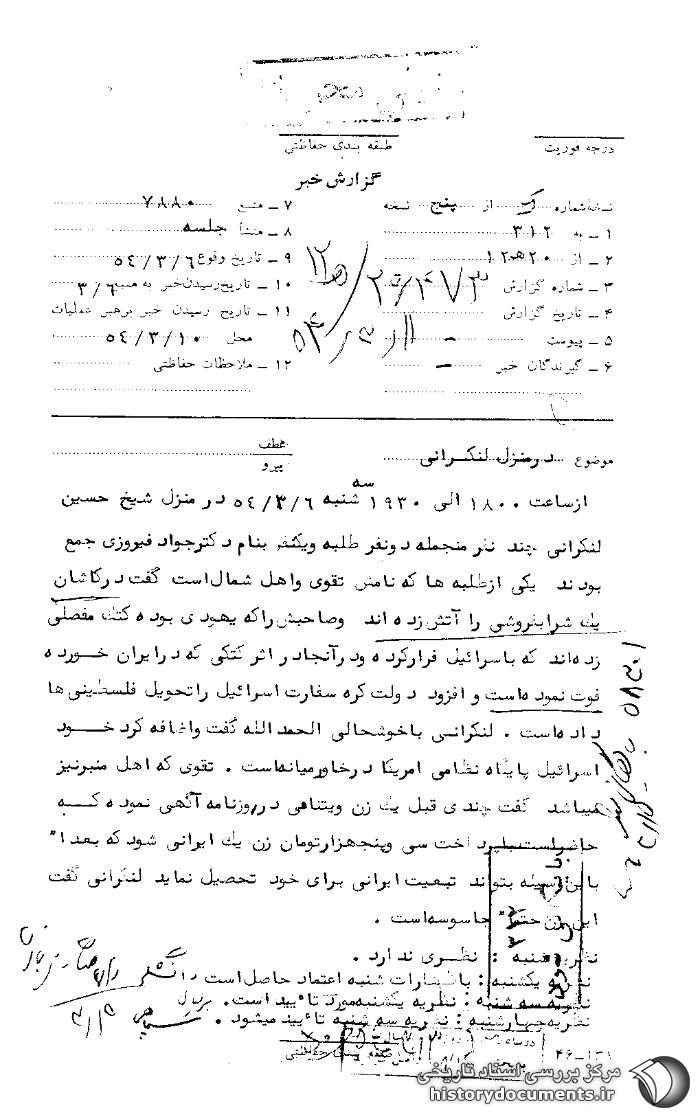 درجه فوریت
طبقه بندی حفاظتی
گزارش خبر
نسخه شماره از پنج نسخه
۱ ـ به ۳۱۲
۲ ـ از ۲۰ هـ ۱۲
۳ ـ شماره گزارش
۴ ـ تاریخ گزارش
۵ ـ پیوست ـ
۶ ـ گیرندگان خبر ـ
۷ ـ منبع ۷۸۸۰
۸ ـ منشأ جلسه
۹ ـ تاریخ وقوع ۵۴/۳/۶
۱۰ ـ تاریخ رسیدن خبر به منبع ۳/۶
۱۱ ـ تاریخ رسیدن خبر برهبر عملیات
محل ۵۴/۳/۱۰
۱۲ ـ ملاحظات حفاظتی
موضوع درمنزل لنکرانی
عطف
پیرو
ازساعت ۱۸۰۰ الی ۱۹۳۰ سه شنبه ۵۴/۳/۶ در منزل شیخ حسین
لنکرانی چند نفر منجمله دونفر طلبه ویکنفر بنام دکترجواد فیروزی جمع
بودند یکی ازطلبه ها که نامش تقوی واهل شمال است گفت درکاشان
یك شرابفروشی را آتش زده اند وصاحبش راکه یهودی بوده کتك مفصلی
زده اند که باسرائیل فرارکرده ودرآنجادر اثر کتکی که درایران خورده
فوت نموده است و افزود دولت کره سفارت اسرائیل راتحویل فلسطینی ها
داده است . لنکرانی باخوشحالی الحمد الله گفت واضافه کرد خود
اسرائیل پایگاه نظامی امریکا درخاورمیانه است . تقوی که اهل منبرنیز
میباشد گفت چندی قبل یك زن ویتنامی در روزنامه آگهی نموده که
حاضراست با پرداخت سی وپنجهزارتومان زن یك ایرانی شود که بعدا"
باین وسیله بتواند تبعیت ایرانی برای خود تحصیل نماید لنکرانی گفت
این زن حتما" جاسوسه است .
نظریه شنبه : نظری ندارد .
نظریه یکشنبه : باظهارات شنبه اعتماد حاصل است دانشگر
نظریه سه شنبه : نظریه یکشنبه مورد تائید است.
نظریه چهارشنبه : نظریه سه شنبه تائید میشود .
طبقه بندی حفاظتی
۴۶-۱۳۱
مرکز بررسی اسناد تاریخی
historydocuments.ir